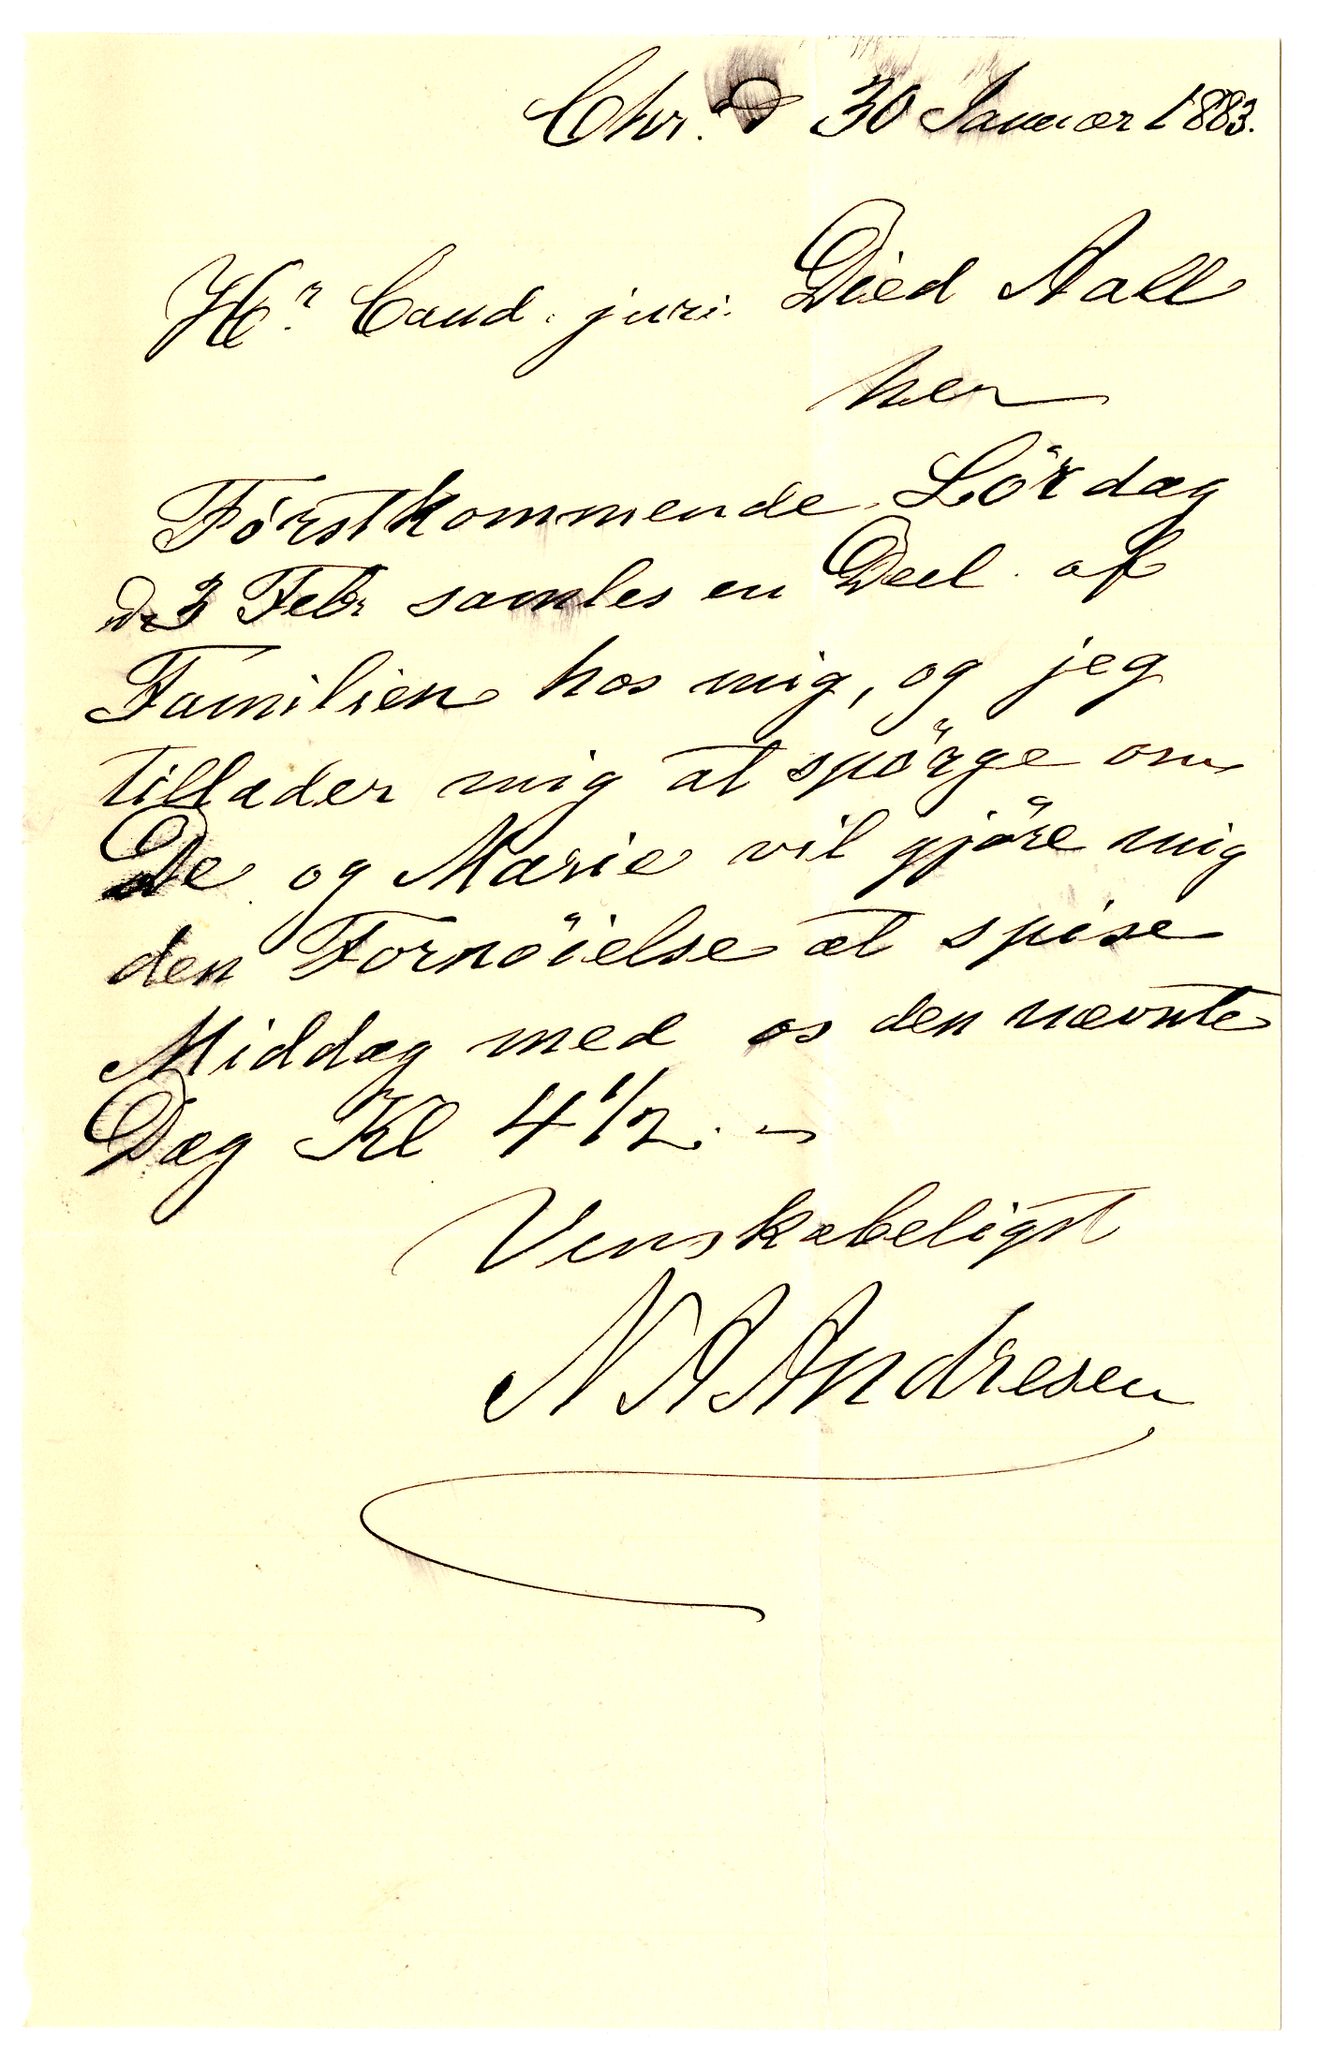 Chr.a d 30 Januar 1883.
Hr. Cand. juri. Died Aall
her
Förstkommende Lördag
d. 3 Febr samles en Deel af
Familien hos mig, og jeg
tillader mig at spörge om
De og Marie vil gjöre mig
den Fornöielse at spise
Middag med os den nævnte
Dag Kl 4 1/2. –
Venskabeligst
N A Andresen